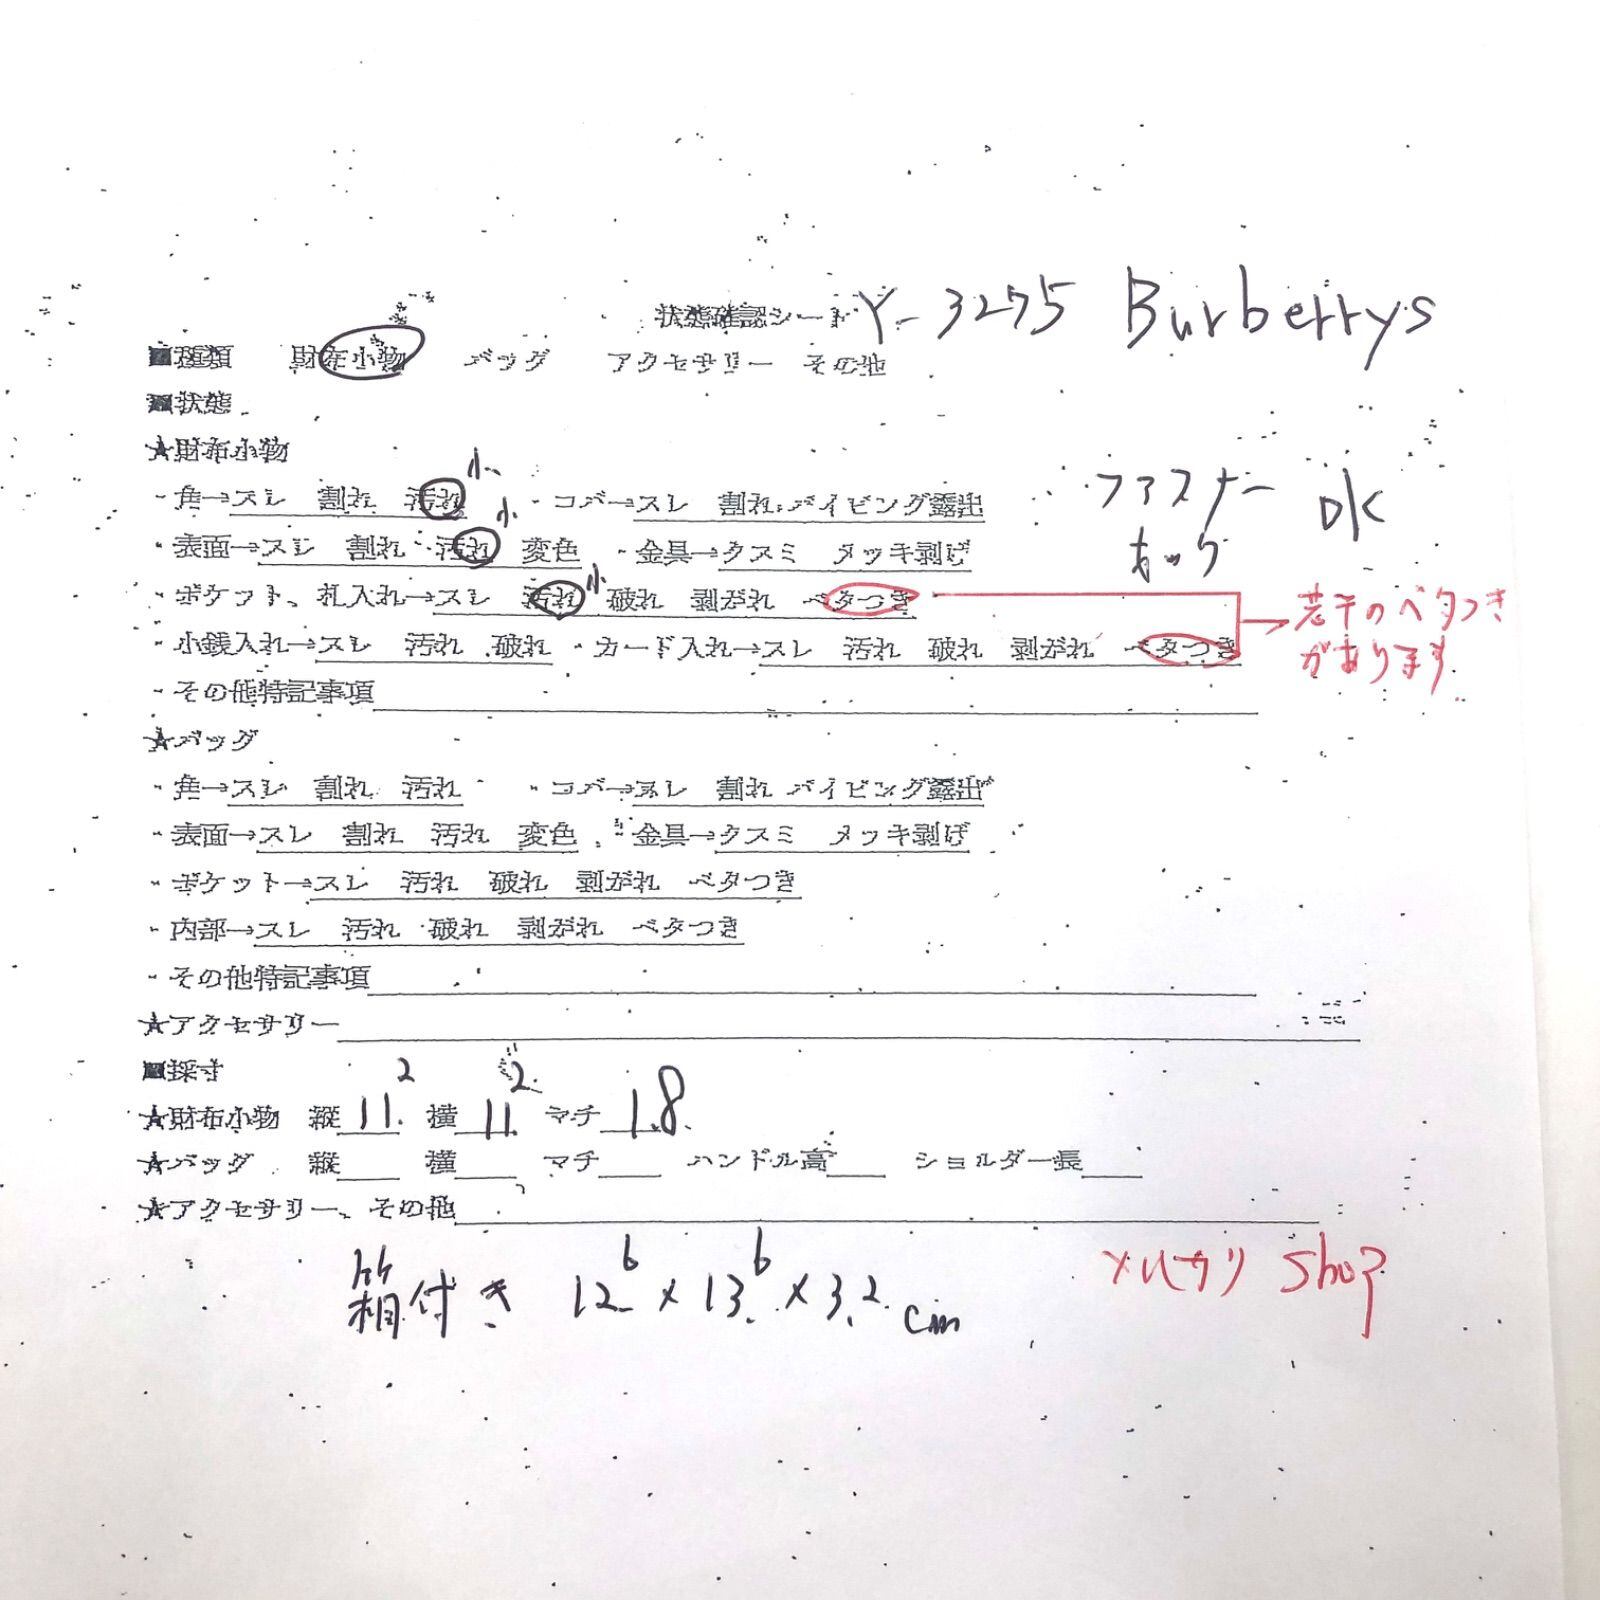 状態確認シート Y-3275 Burberrys
■種類 財布小物 バッグ アクセサリー その他
■状態
★財布小物
・角→スレ 割れ 汚れ 小 ・コバ→スレ 割れ パイピング露出
ファスナー
ホック
OK
・表面→スレ 割れ 汚れ 小 変色 ・金具→クスミ メッキ剥げ
・ポケット、札入れ→スレ 汚れ 小 破れ 剥がれ ベタつき
若干のベタつき
があります
・小銭入れ→スレ 汚れ 破れ ・カード入れ→スレ 汚れ 破れ 剥がれ ベタつき
・その他特記事項
★バッグ
・角→スレ 割れ 汚れ ・コバ→スレ 割れ パイピング露出
・表面→スレ 割れ 汚れ 変色 ・金具→クスミ メッキ剥げ
・ポケット→スレ 汚れ 破れ 剥がれ ベタつき
・内部→スレ 汚れ 破れ 剥がれ ベタつき
・その他特記事項
★アクセサリー
■採寸
★財布小物 縦 11.2 横 11.2 マチ 1.8
★バッグ 縦 横 マチ ハンドル高 ショルダー長
★アクセサリー、その他
箱付き 12.6 x 13.6 x 3.2 cm
メルカリ Shop